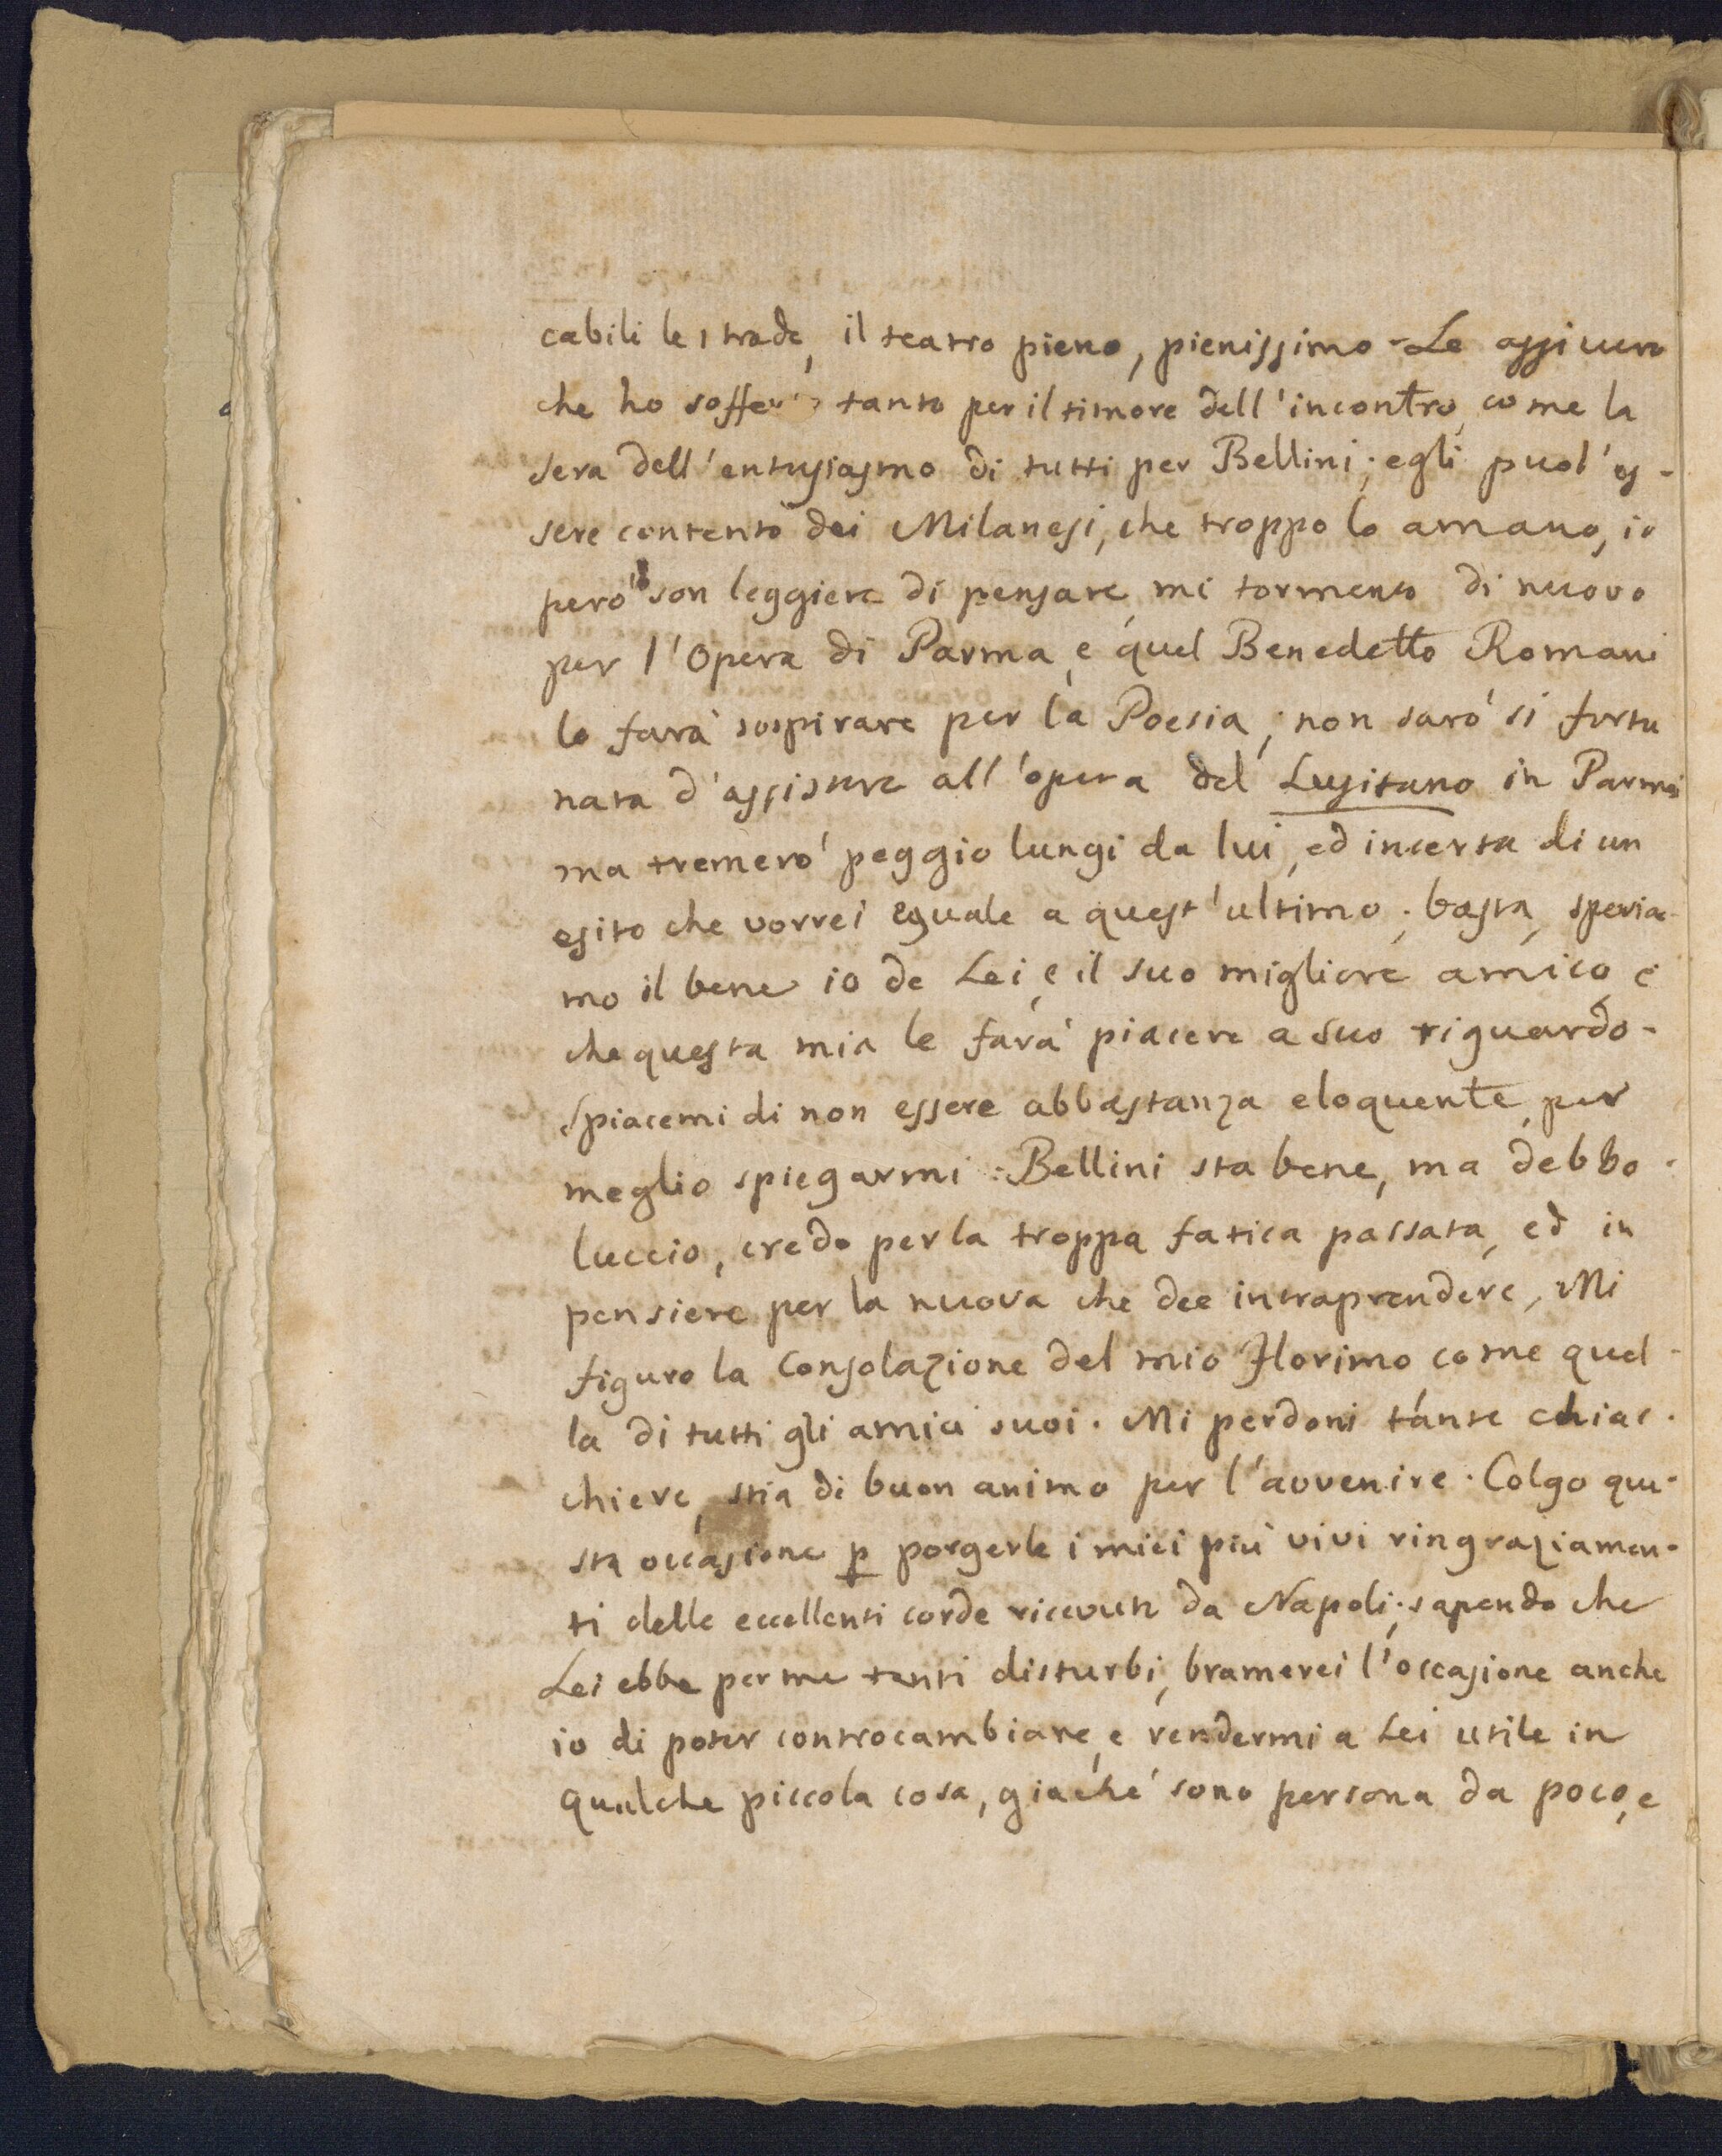 cabili le strade, il teatro pieno, pienissimo - Le assicuro
che ho sofferto tanto per il timore dell'incontro, come la
sera dell'entusiasmo di tutti per Bellini; egli puol'es-
sere contento dei Milanesi, che troppo lo amano, io
però son leggiera di pensare, mi tormento di nuovo
per l'Opera di Parma, e quel Benedetto Romani
lo farà sospirare per la Poesia; non sarò si fortu
nata d'assistere all'opera del Lusitano in Parma
ma tremerò peggio lungi da lui, ed incerta di un
esito che vorrei eguale a quest'ultimo; basta, speria-
mo il bene io de Lei, e il suo migliore amico, e
che questa mia le farà piacere a suo riguardo -
Spiacemi di non essere abbastanza eloquente, per
meglio spiegarmi: Bellini sta bene, ma debbo-
luccio, credo per la troppa fatica passata, ed in
pensiere per la nuova che dee intraprendere, Mi
figuro la Consolazione del mio Florimo come quel-
la di tutti gli amici suoi. Mi perdoni tante chiac-
chiere, stia di buon animo per l'avvenire. Colgo que-
sta occasione p porgerle i miei più vivi ringraziamen-
ti delle eccellenti corde ricevute da Napoli; sapendo che
Lei ebbe per me tanti disturbi, bramerei l'occasione anche
io di poter controcambiare, e rendermi a Lei utile in
qualche piccola cosa, giaché sono persona da poco, e